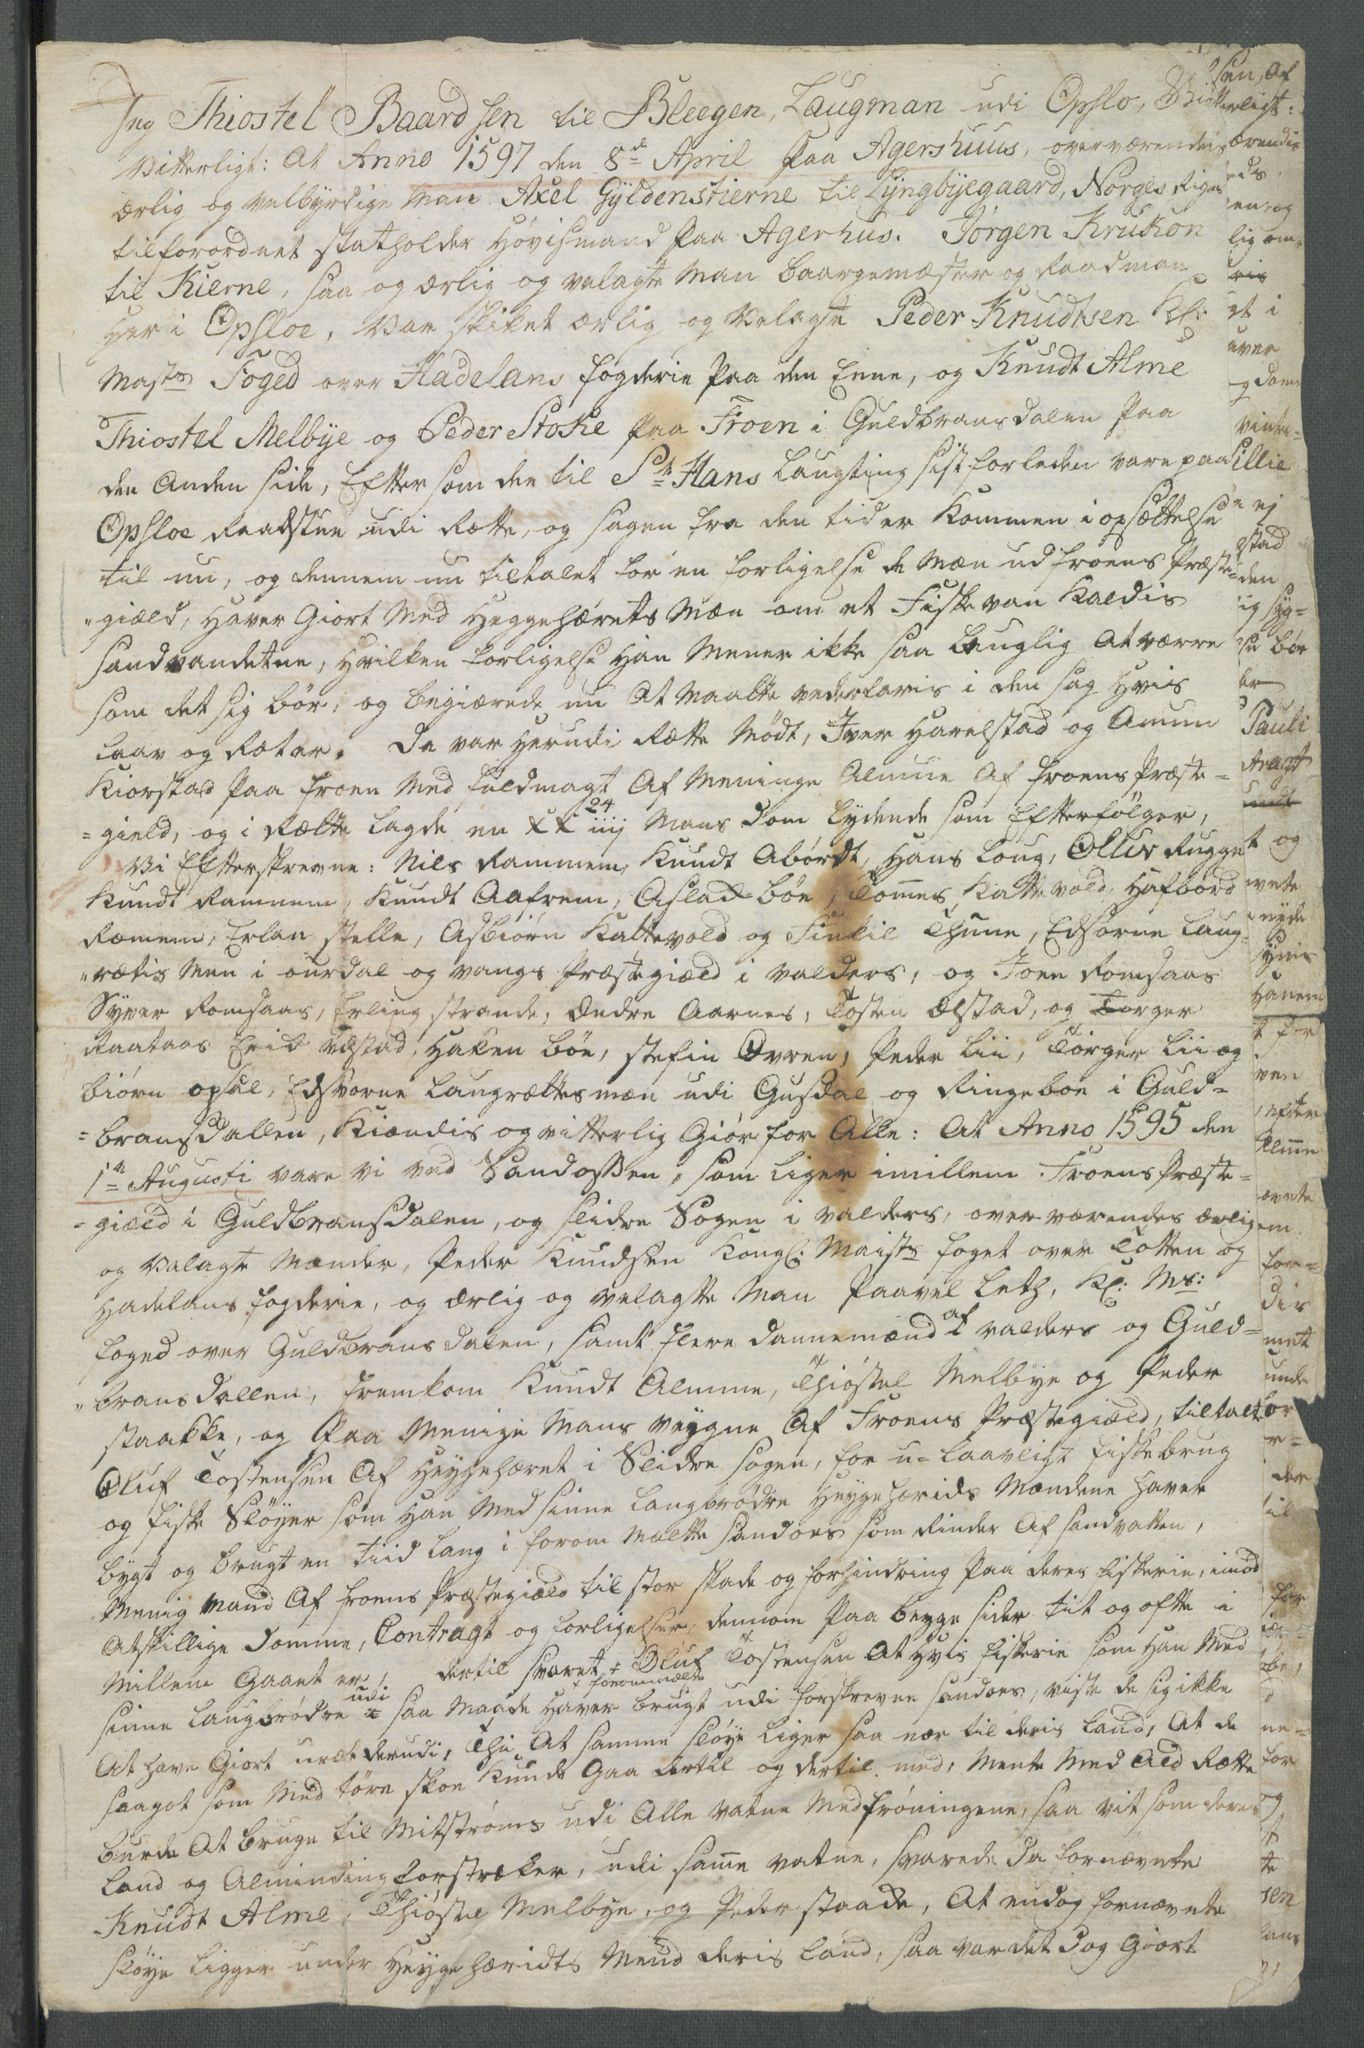 Jeg Thiostel Baardsen til Bleegen, Laugman udi Opslo, Giør
Vitterligt: At Anno 1597 den 8de April paa Agershuus, overværendes
ærlig og velbyrdige Man Axel Gyldenstierne til Lyngbyegaard, Norges Riges
tilforordnet statholder Høvismand paa Agerhus. Jørgen Krukon
til Kierne, saa og ærlig og velagte Man baargemæster og Raadman
Her i Opsloe, Var skiket ærlig og Velagte Peder Knudtsen Kl:
Majts Foged over Hadelans fogderie paa den Enne, og Knudt Alme
Thiostel Melbye og Peder Stoke paa Froen i Guldbransdalen paa
den Anden side, Efter som de til St Hans Laugting sist forleden vare paa
Opsloe Raadstue udi Rætte, og sagen fra den tid er Kommen i opsættelse
til nu, og dennem nu tiltalet for en forligelse de Mæn ud froens Præste-
"giæld, Haver Giort Med Heggehærets Mæn om et Fiskevan Kaldis
sandvandetne, Hvilken forligelse Han Mener ikke saa lauglig At værre
som det sig bør, og begiærede nu At Maatte vederfaris i den sag Hvis
laav og Ræt er. Da var Herudi Rætte Mødt, Iver Harelstad og Amun
Kiorstad paa froen Med fuldmagt Af Meninge Almue Af froens Præste-
=gield, og i Rætte lagde en XX iiij 24 Mans Dom lydende som Efterfølger,
Vi Efterskrevne: Nils Rammem, Knudt Abördt, Hans Loug, Olluv Rugge
Knudt Rammem, Knudt Aafrem, Aslad bøe, Tommes Kattevold, Hafbord
Ræmem, Erlan stelle, Asbiørn Kattevold og Finkil Thune, Edsorne Laug-
"rætis Men i Ourdal og vangs Præstegiæld i valders, og Joen Romsaas
Syver Romsaas, Erling strande, Endre Aarnes, Tosten Ælstad, og Torger
Raataas Erid Ulstad, Haken bøe, stefin Øvren, Peder Lii, Torger Lii og
biørn opsal, Edsvorne Laugrættesmæn udi Gusdal og Ringeboe i Guld-
=bransdallen, Kiændis og vitterlig Giør for Alle: At Anno 1595 den
1te Augusti vare vi ved Sandossen, som liger imillem Froens Præste-
=giæld i Guldbransdalen, og slidre Sogen i valders, overværendes ærlig
og Velagte Mænder, Peder Knudsen Kongl: Maists foget over Totten og
Hadelans fogderie, og ærlig og Velagtte Man Paavel Letz, Kl: Ms:
foged over Guldbransdalen, samt flere dannemænd af valders og Guld=
"bransdallen, fremkom Knudt Almme, Thiøstel Melbye og Peder
staakke, og Paa Menige Mans veygne Af Froens Præstegiæld, tiltalt
Oluf Tostensen Af Heyghehæret i Slidre sogen, for u-laavligt fiskebrug
og fiske Sløyer som Han Med sinne Laugbrødre Heygehærids Mændene haver
bygt og brugt en tiid lang i forom Meltte sandoes som Rinder Af sandvatten,
Menig Mand Af froens Præstegiæld til stor skade og forhindring paa deres fiskerie, imod
Atskillige Domme, Contragt og forligelser, dennom paa beyge sider tit og ofte i
Millem Gaaet er, dertil svaret + Oluf Tostensen At Hvis fiskerie som Han Med
+ forommelte
sinne Laugbrødre udi saa Maade Haver brugt udi forskrevne sandoes, viste de sig ikke
At have Giort uret derudi, Thi At samme sløye liger saa nær til deris land, At de
saagot som Med tøre skoe Kunde Gaa dertil og dertil med, Mente Med Ald Rætte
burde At bruge til Mitstrøms udi Alle vatne Medfrøningene, saa vit som deres
Land og Alminding forstræker, udi samme vatne, svarede da fornævnte
Knudt Alme, Thiøstel Melbye, og Peder staade, At endog fornævnte
sløye ligger under Heyge Hæridts Mend deris land, saa var det Dog Giort